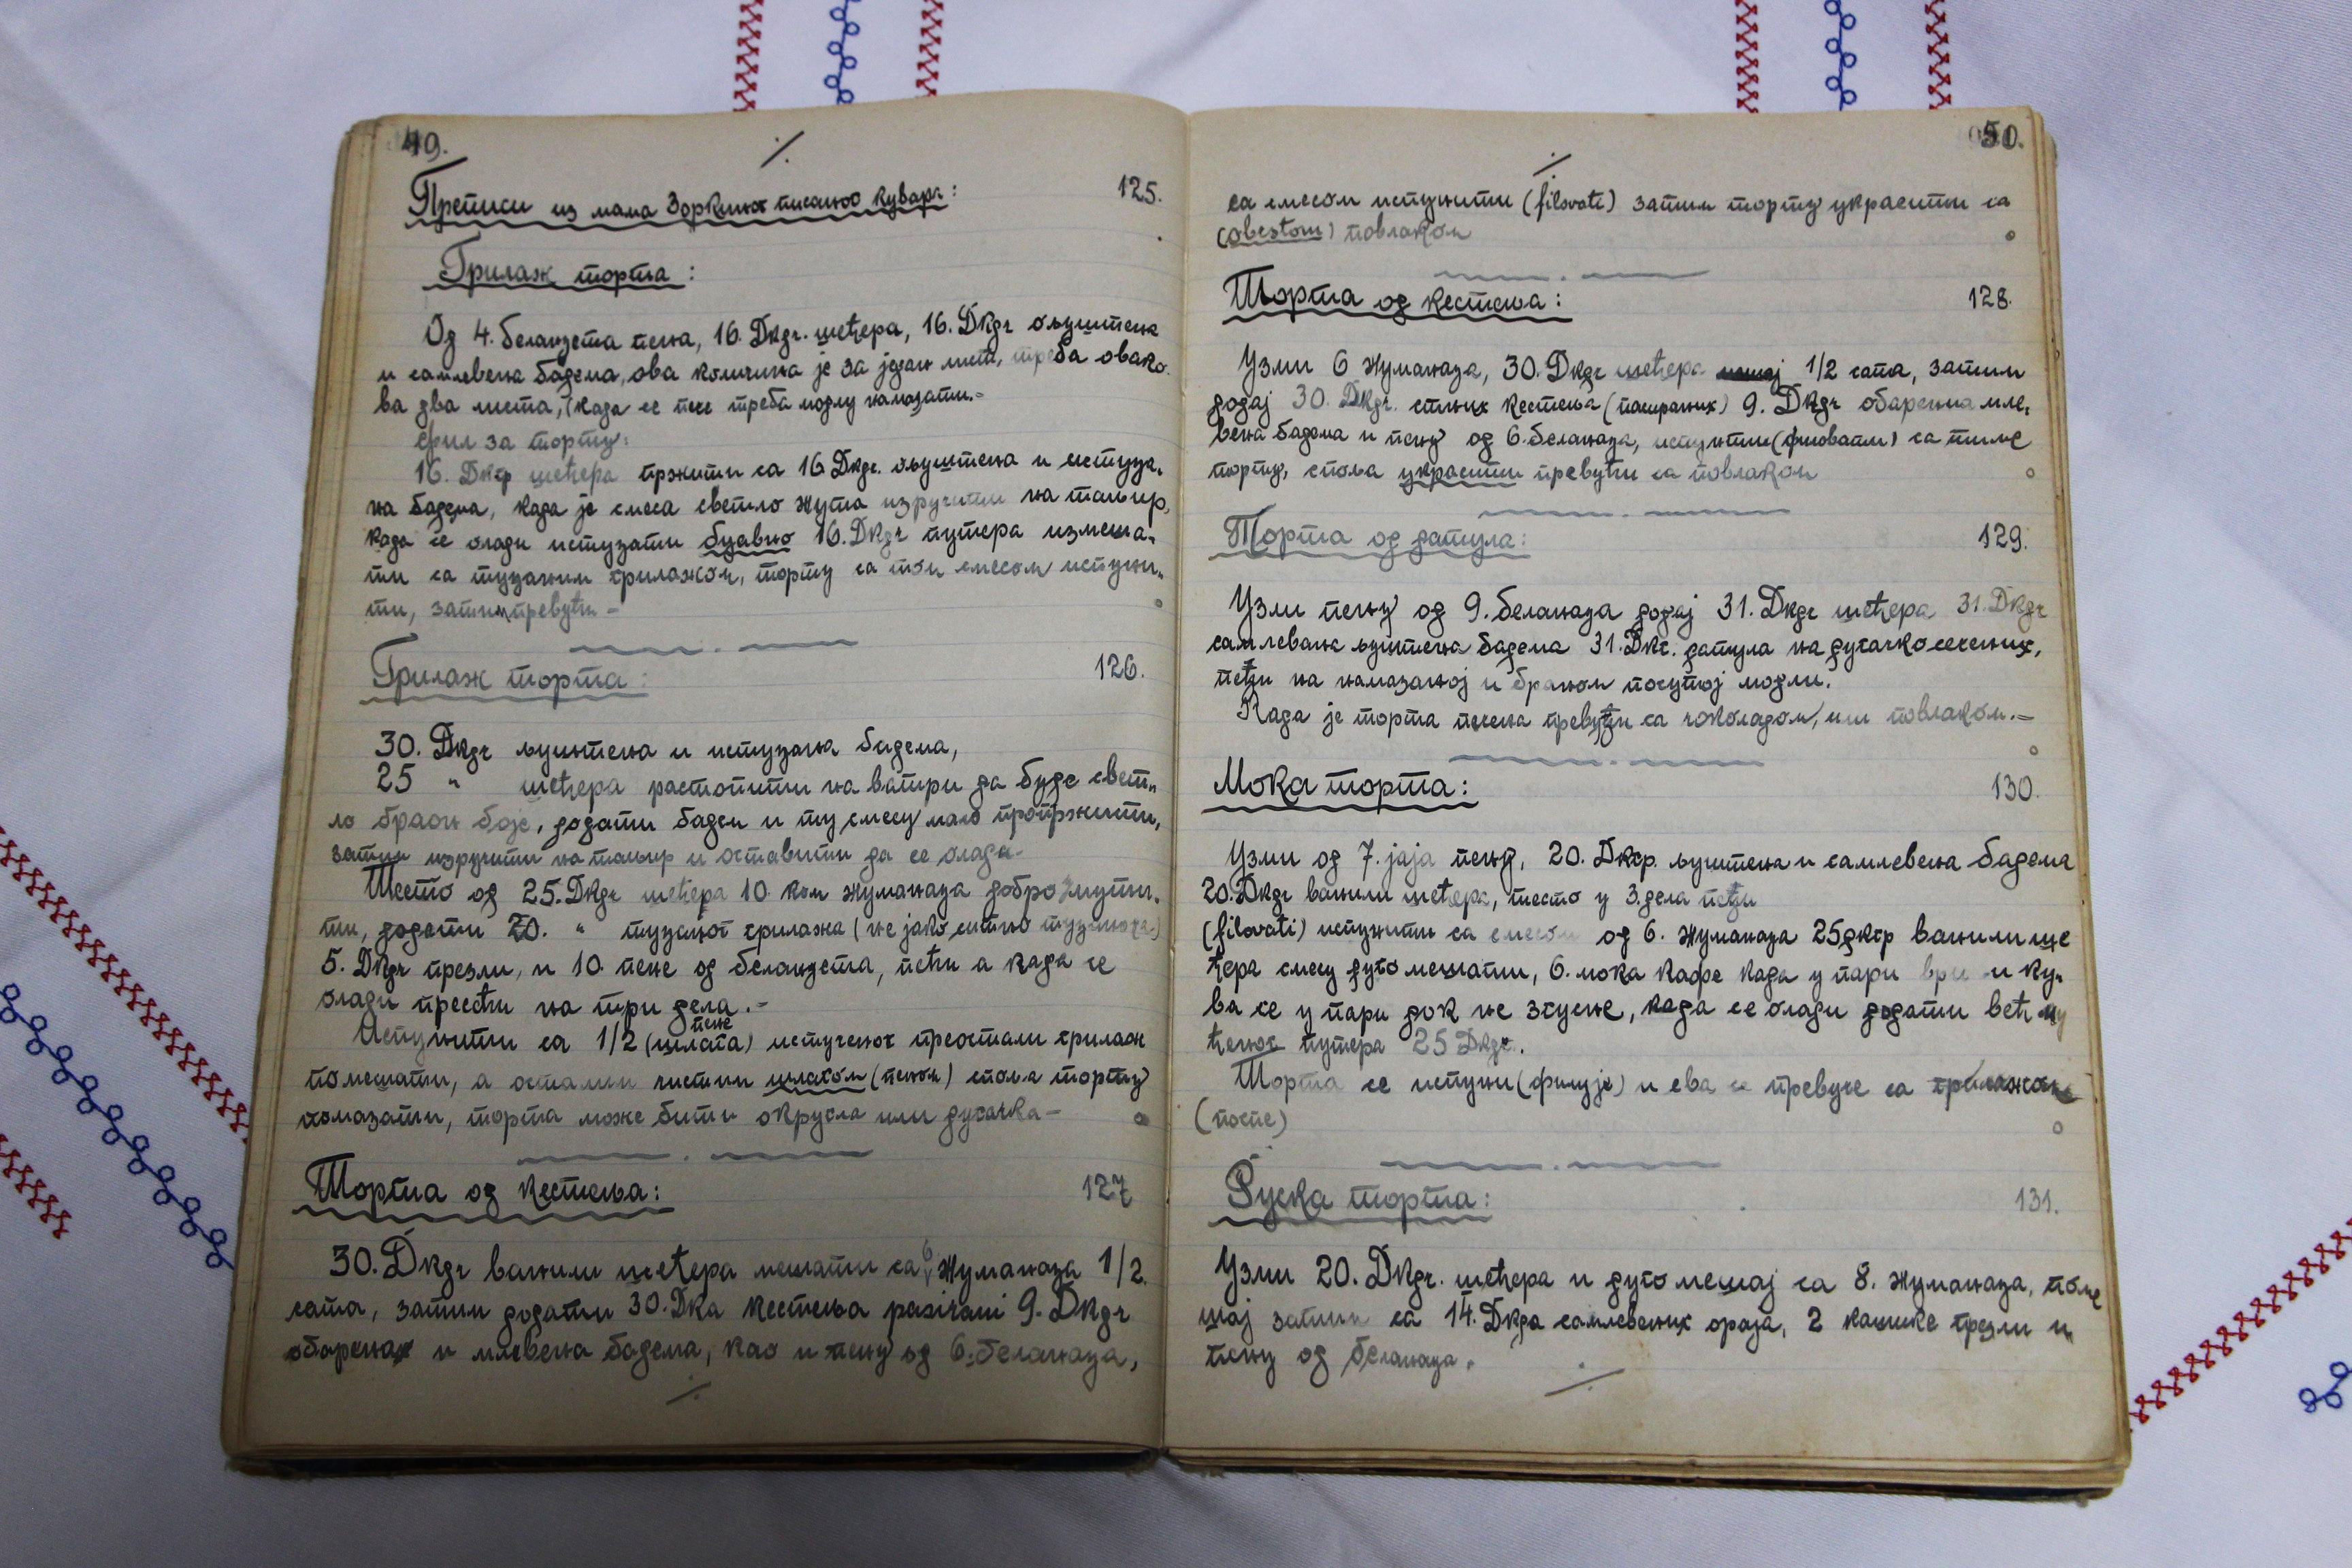 49.
./.
Преписи из мама Зоркиног писаног кувара:
125.
Грилаж торта:
Од 4. беланцета пена, 16. Dkgr. шећера, 16. Dkgr ољуштена
и самлевена бадема, ова количина је за један лист, треба овако-
ва два листа, (када се пече треба модлу намазати.-
Фил за торту:
16. Dkgr шећера пржити са 16 Dkgr. ољуштена и истуца-
на бадема, када је смеса светло жута изручити на тањир,
када се олади истуцати буавно 16. Dkgr путера измеша-
ти са туцаним грилажом, торту са том смесом испуни-
ти, затим превући -
Грилаж торта:
126.
30. Dkgr љуштена и истуцана бадема,
25 " шећера растопити на ватри да буде свет-
ло браон боје, додати бадем и ту смесу мало пропржити,
затим изручити на тањир и оставити да се олади-
Тесто од 25. Dkgr шећера 10 ком жуманаца добро умути-
ти, додати 20. " туцаног грилажа (не јако ситно туцанога)
5. Dkgr презли, и 10 пене од беланцета, пећи а када се
олади пресећи на три дела.-
пене
Испунити са 1/2 (шлага) истученог преостали грилаж
помешати, а осталим чистим шлагом (пеном) споља торту
намазати, торта може бити округла или дугачка-
Торта од кестења:
127
30. Dkgr ванили шећера мешати са 6 жуманаца 1/2
сата, затим додати 30. Dka кестења pasirani 9. Dkgr
обарена и млевена бадема, као и пену од 6. беланаца,
./.
50.
./.
са смесом испунити (filovati) затим торту украсити са
(obestom) повлаком
Торта од кестења:
128.
Узми 6 жуманаца, 30. Dkgr шећера мешај 1/2 сата, затим
додај 30. Dkgr. ситних кестења (пасираних) 9. Dkgr обарена мле-
вена бадема и пену од 6. беланаца, испунити (филовати) са тиме
торту, споља украсити превући са повлаком
Торта од датула:
129.
Узми пену од 9. беланаца додај 31. Dkgr шећера 31. Dkgr
самлевана љуштена бадема 31. Dkg. датула на дугачко сечених,
пећи на намазаној и браном посутој модли.
Када је торта печена превући са чоколадом, или повлаком.-
Мока торта:
130.
Узми од 7. јаја пену, 20. Dkgr. љуштена и самлевена бадема
20. Dkgr ванили шећера, тесто у 3. дела пећи
(filovati) испунити са смесом од 6. жуманаца 25 дкгр ванили ше
ћера смесу дуго мешати, 6. мока кафе када у пари ври и ку-
ва се у пари док не згусне, када се олади додати већ му
ћеног путера 25 Dkgr.
Торта се испуни (филује) и ева се превуче са грилажом
(после)
Руска торта:
131.
Узми 20. Dkgr. шећера и дуго мешај са 8. жуманаца, поме
шај затим са 14. Dkga самлевених ораја, 2 кашике презли и
пену од беланаца.
./.